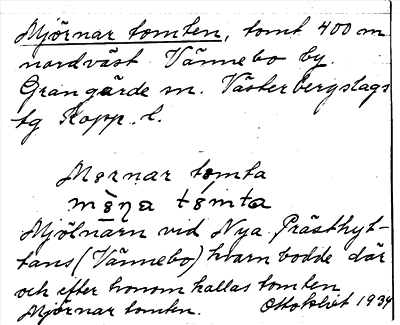 Mjörnar tomten, tomt 400 m
nordväst Vännebo by.
Grangärde sn. Västerbergslags
tg Kopp. l.
Mørnar tømta
mø̀ṇa tømta
Mjölnarn vid Nya Prästhyt-
tans (Vännebo) kvarn bodde där
och efter honom kallas tomten
Mjörnar tomten. 1934